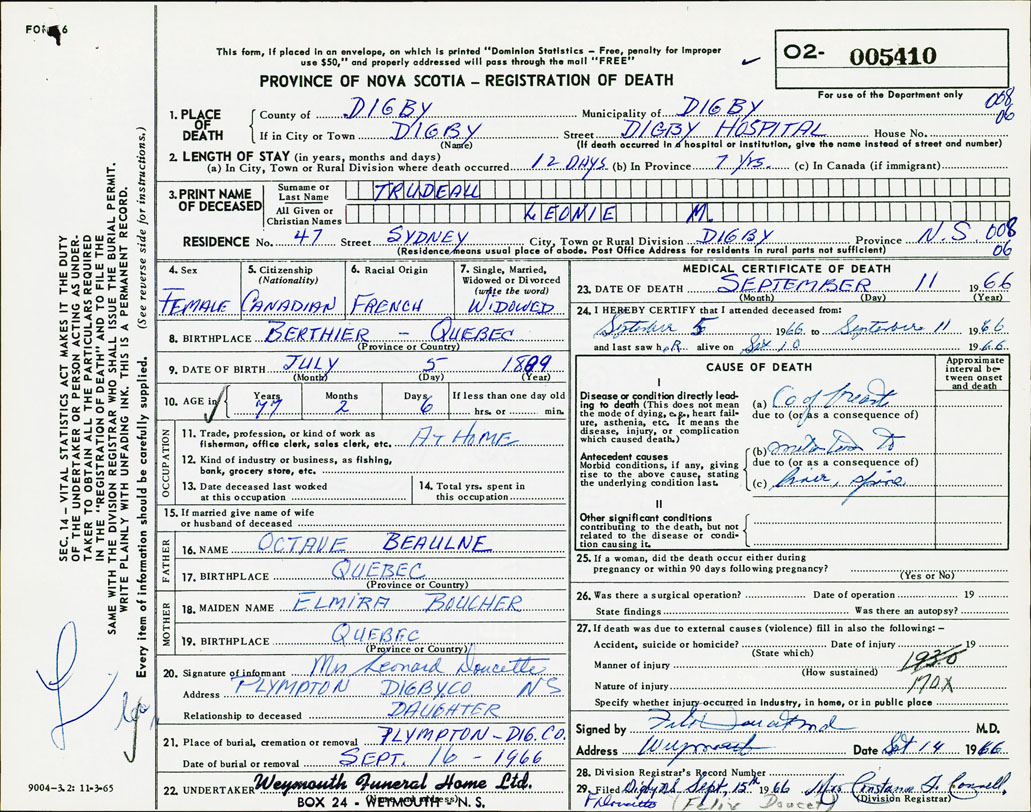 FORM 6
This form, if placed in an envelope, on which is printed "Dominion Statistics – Free, penalty for improper
use $50," and properly addressed will pass through the mail "FREE"
PROVINCE OF NOVA SCOTIA – REGISTRATION OF DEATH
O2- 005410
For use of the Department only
008
06
1. PLACE OF DEATH
County of DIGBY Municipality of DIGBY
If in City or Town DIGBY Street DIGBY HOSPITAL House No.
(Name) (If death occurred in a hospital or institution, give the name instead of street and number)
2. LENGTH OF STAY (in years, months and days)
(a) In City, Town or Rural Division where death occurred 12 DAYS (b) In Province 7 Yrs. (c) In Canada (if immigrant)
3. PRINT NAME OF DECEASED
Surname or Last Name TRUDEAU
All Given or Christian Names LEONIE M.
RESIDENCE No. 47 Street SYDNEY City, Town or Rural Division DIGBY Province N.S. 008
(Residence means usual place of abode. Post Office Address for residents in rural parts not sufficient) 06
4. Sex
FEMALE
5. Citizenship
(Nationality)
CANADIAN
6. Racial Origin
FRENCH
7. Single, Married,
Widowed or Divorced
(write the word)
WIDOWED
8. BIRTHPLACE BERTHIER – QUEBEC
(Province or Country)
9. DATE OF BIRTH JULY 5 1889
(Month) (Day) (Year)
10. AGE in
Years 77
Months 2
Days 6
If less than one day old
hrs. or min.
OCCUPATION
11. Trade, profession, or kind of work as
fisherman, office clerk, sales clerk, etc. AT HOME
12. Kind of industry or business, as fishing,
bank, grocery store, etc.
13. Date deceased last worked
at this occupation
14. Total yrs. spent in
this occupation
15. If married give name of wife
or husband of deceased
FATHER
16. NAME OCTAVE BEAULNE
17. BIRTHPLACE QUEBEC
(Province or Country)
MOTHER
18. MAIDEN NAME ELMIRA BOUCHER
19. BIRTHPLACE QUEBEC
(Province or Country)
20. Signature of informant Mrs Leonard Doucette
Address PLYMPTON DIGBY CO NS
Relationship to deceased DAUGHTER
21. Place of burial, cremation or removal PLYMPTON – DIG. CO.
Date of burial or removal SEPT. 16 – 1966
22. UNDERTAKER Weymouth Funeral Home Ltd.
BOX 24 - WEYMOUTH - N.S.
MEDICAL CERTIFICATE OF DEATH
23. DATE OF DEATH SEPTEMBER 11 1966
(Month) (Day) (Year)
24. I HEREBY CERTIFY that I attended deceased from:
September 5 1966 to September 11 1966
and last saw heR alive on Sept 10 1966.
CAUSE OF DEATH
Approximate
interval be-
tween onset
and death
I
Disease or condition directly lead-
ing to death (This does not mean
the mode of dying, e.g., heart fail-
ure, asthenia, etc. It means the
disease, injury, or complication
which caused death.)
(a) Ca of breast
due to (or as a consequence of)
Antecedent causes
Morbid conditions, if any, giving
rise to the above cause, stating
the underlying condition last.
(b) to
due to (or as a consequence of)
(c) liver, spine
II
Other significant conditions
contributing to the death, but not
related to the disease or condi-
tion causing it.
25. If a woman, did the death occur either during
pregnancy or within 90 days following pregnancy?
(Yes or No)
26. Was there a surgical operation? Date of operation 19
State findings Was there an autopsy?
27. If death was due to external causes (violence) fill in also the following: –
Accident, suicide or homicide? Date of injury 19
(State which)
Manner of injury
(How sustained)
Nature of injury 170X
Specify whether injury occurred in industry, in home, or in public place
Signed by M.D.
Address Weymouth Date Sept 14 1966
28. Division Registrar's Record Number
29. Filed Digby NS Sept. 15th 1966 Mrs Constance F. Connell
(Division Registrar)
F Doucette (Felix Doucet)
SEC. 14 – VITAL STATISTICS ACT MAKES IT THE DUTY
OF THE UNDERTAKER OR PERSON ACTING AS UNDER-
TAKER TO OBTAIN ALL THE PARTICULARS REQUIRED
IN THE "REGISTRATION OF DEATH" AND TO FILE THE
SAME WITH THE DIVISION REGISTRAR WHO SHALL ISSUE THE BURIAL PERMIT.
WRITE PLAINLY WITH UNFADING INK. THIS IS A PERMANENT RECORD.
Every item of information should be carefully supplied. (See reverse side for instructions.)
9004-3.2: 11-3-65